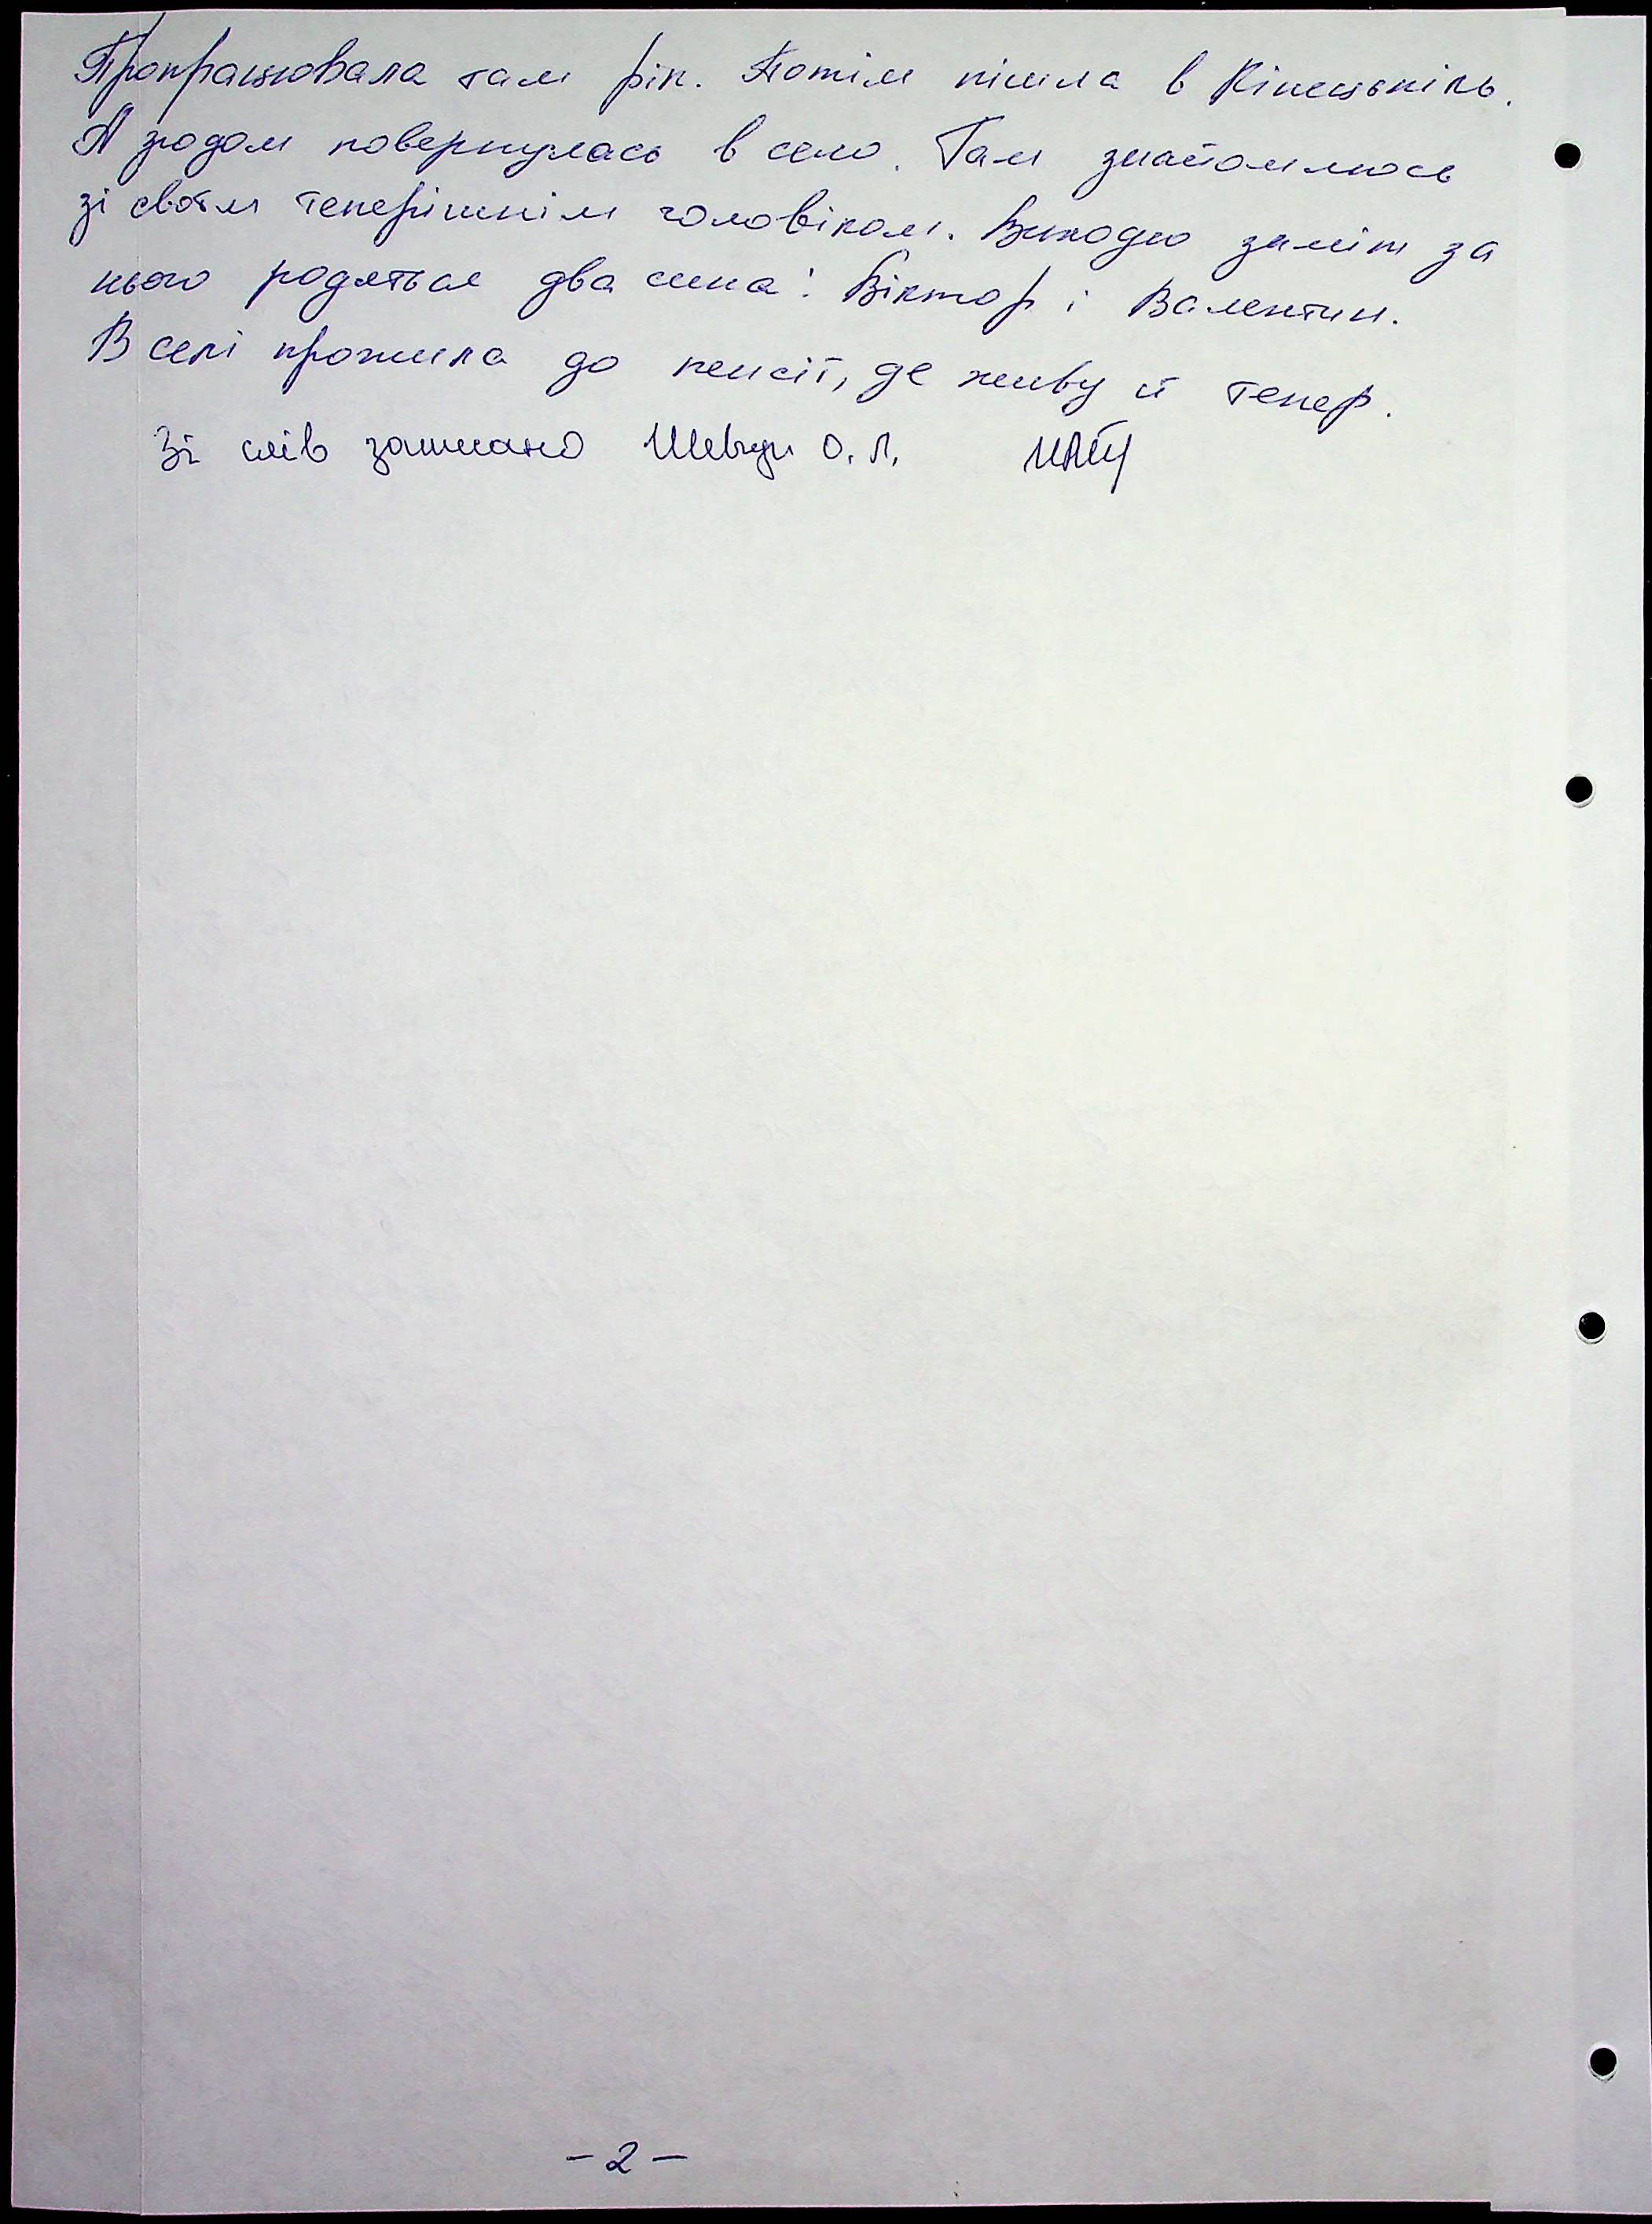 Пропрацювала там рік. Потім пішла в Кінецьпіль.
А згодом повернулась в село. Там знайомлюсь
зі своїм теперішнім чоловіком. Виходю заміж за
нього родяться два сина: Віктор і Валентин.
В селі прожила до пенсії, де живу й тепер.
Зі слів записано Шевчук О. Л.
- 2 -